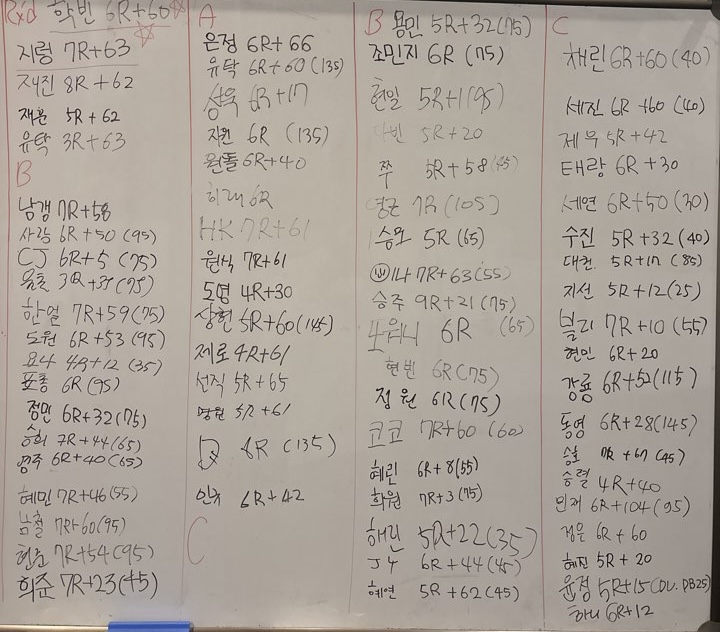 Rx'd 학빈 6R+60
지렁 7R+63
재진 8R+62
재훈 5R+62
유탁 3R+63
B
남갱 7R+58
사랑 6R+50(95)
CJ 6R+5(75)
한얼 7R+59(75)
도원 6R+53(95)
요나 4R+12(35)
표종 6R(95)
정민 6R+32(75)
승희 7R+44(65)
영주 6R+40(65)
혜민 7R+46(55)
남철 7R+60(95)
현호 7R+54(95)
희준 7R+23(45)
A
은정 6R+66
유탁 6R+60(135)
상욱 6R+17
지원 6R (135)
원돌 6R+40
희래 6R
HK 7R+61
원식 7R+61
도영 4R+30
상현 5R+60(145)
제로 4R+61
선직 5R+65
명원 5R+61
6R (135)
인규 6R+42
C
B 용민 5R+32(75)
조민지 6R (75)
현일 5R+1(95)
5R+20
쭈 5R+58(45)
7R(105)
승모 5R(65)
나 7R+63(55)
승주 9R+21(75)
6R (65)
현빈 6R(75)
정원 6R(75)
코코 7R+60(60)
혜린 6R+8(55)
희원 7R+3(75)
해린 5R+22(35)
JY 6R+44(45)
혜연 5R+62(45)
C
채린 6R+60(40)
세진 6R+60(40)
제우 5R+42
태랑 6R+30
세연 6R+50(30)
수진 5R+32(40)
대헌 5R+17(85)
지선 5R+12(25)
블리 7R+10(55)
현민 6R+20
강룡 6R+52(115)
동영 6R+28(145)
승호 7R+67(45)
승렬 4R+40
민재 6R+104(95)
정은 6R+60
혜진 5R+20
윤정 5R+15(DU.DB25)
하니 6R+12